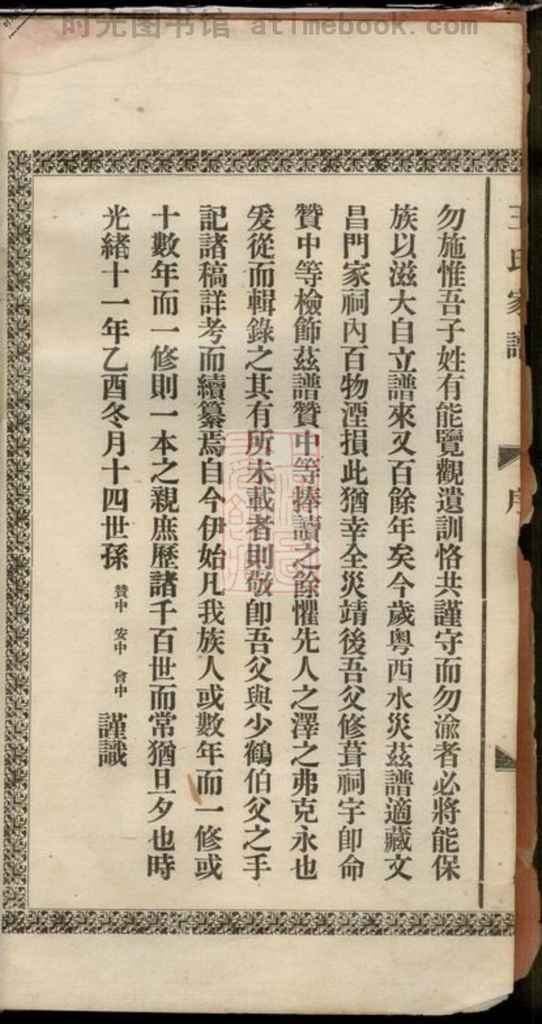 时光图书馆 atimebook.com
王氏家譜 序
勿施惟吾子姓有能覽觀遺訓恪共謹守而勿渝者必將能保
族以滋大自立譜來又百餘年矣今歲粵西水災茲譜適藏文
昌門家祠內百物湮損此猶幸全災靖後吾父修葺祠宇卽命
贊中等檢飾茲譜贊中等捧讀之餘懼先人之澤之弗克永也
爰從而輯錄之其有所未載者則敬卽吾父與少鶴伯父之手
記諸稿詳考而續纂焉自今伊始凡我族人或數年而一修或
十數年而一修則一本之親庶歷諸千百世而常猶旦夕也時
光緒十一年乙酉冬月十四世孫 贊中 安中 會中 謹識